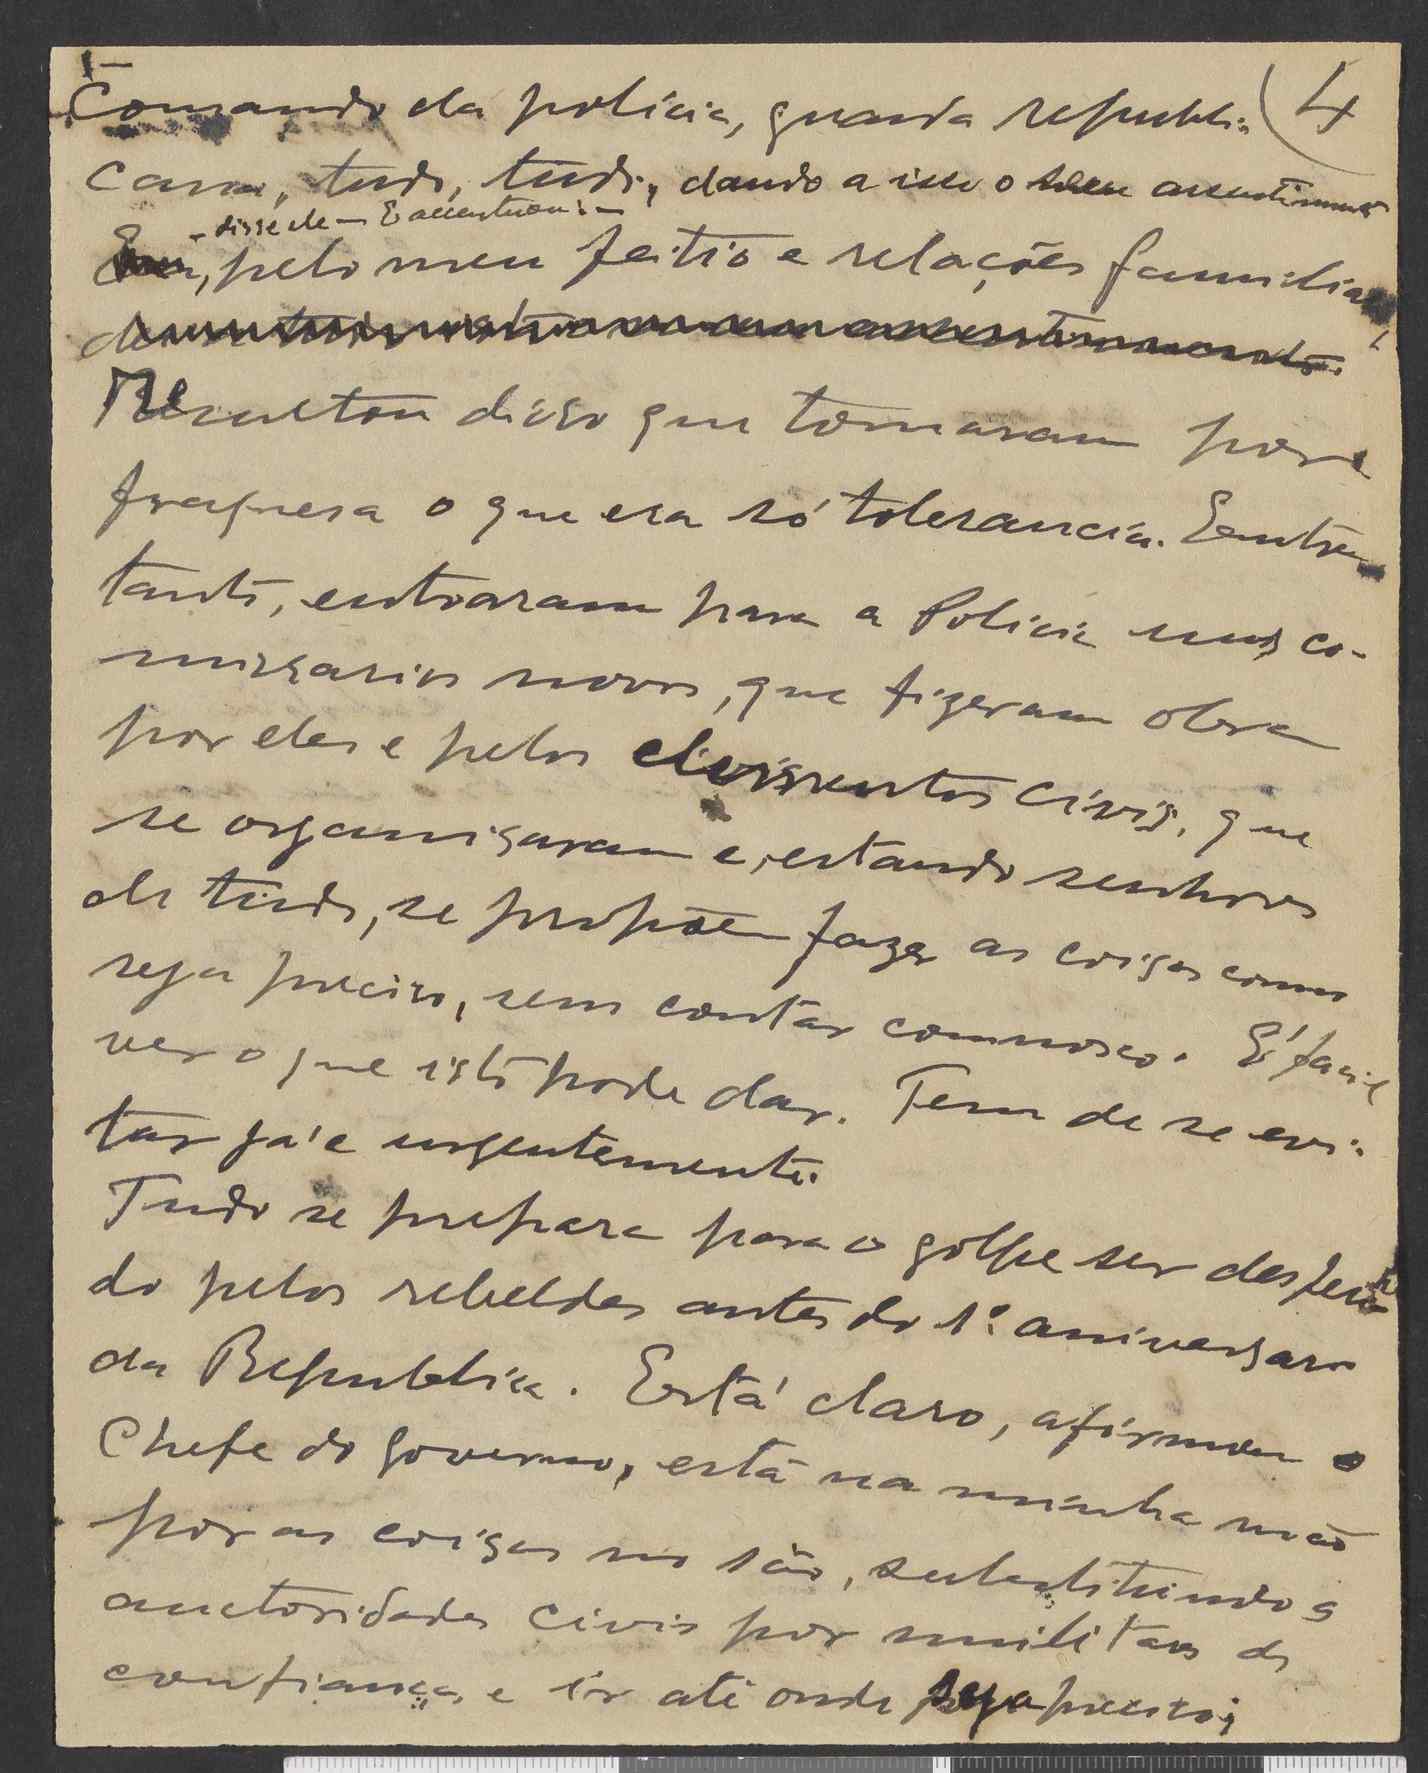 4
Comando da policia, guarda republi-
cana, tudo, tudo, dando a isso o seu assentimento
- disse ele - E accentuou: -
Eu, pelo meu feitio e relações familiares,
Resultou disso que tomaram por
fraquesa o que era só tolerancia. Entre
tanto, entraram para a Policia uns co-
missarios novos, que fizeram obra
por eles e pelos elementos civis, que
se organisaram e, estando senhores
de tudo, se propõem fazer as coisas como
seja preciso, sem contar comnosco. E' facil
ver o que isto pode dar. Tem de se evi-
tar já e urgentemente.
Tudo se prepara para o golpe ser desfecha
do pelos rebeldes antes do 1º aniversario
da Republica. Está claro, afirmou o
Chefe do Governo, está na minha mão
por as coisas no são, substituindo as
auctoridades civis por militares de
confiança e ir até onde seja preciso;